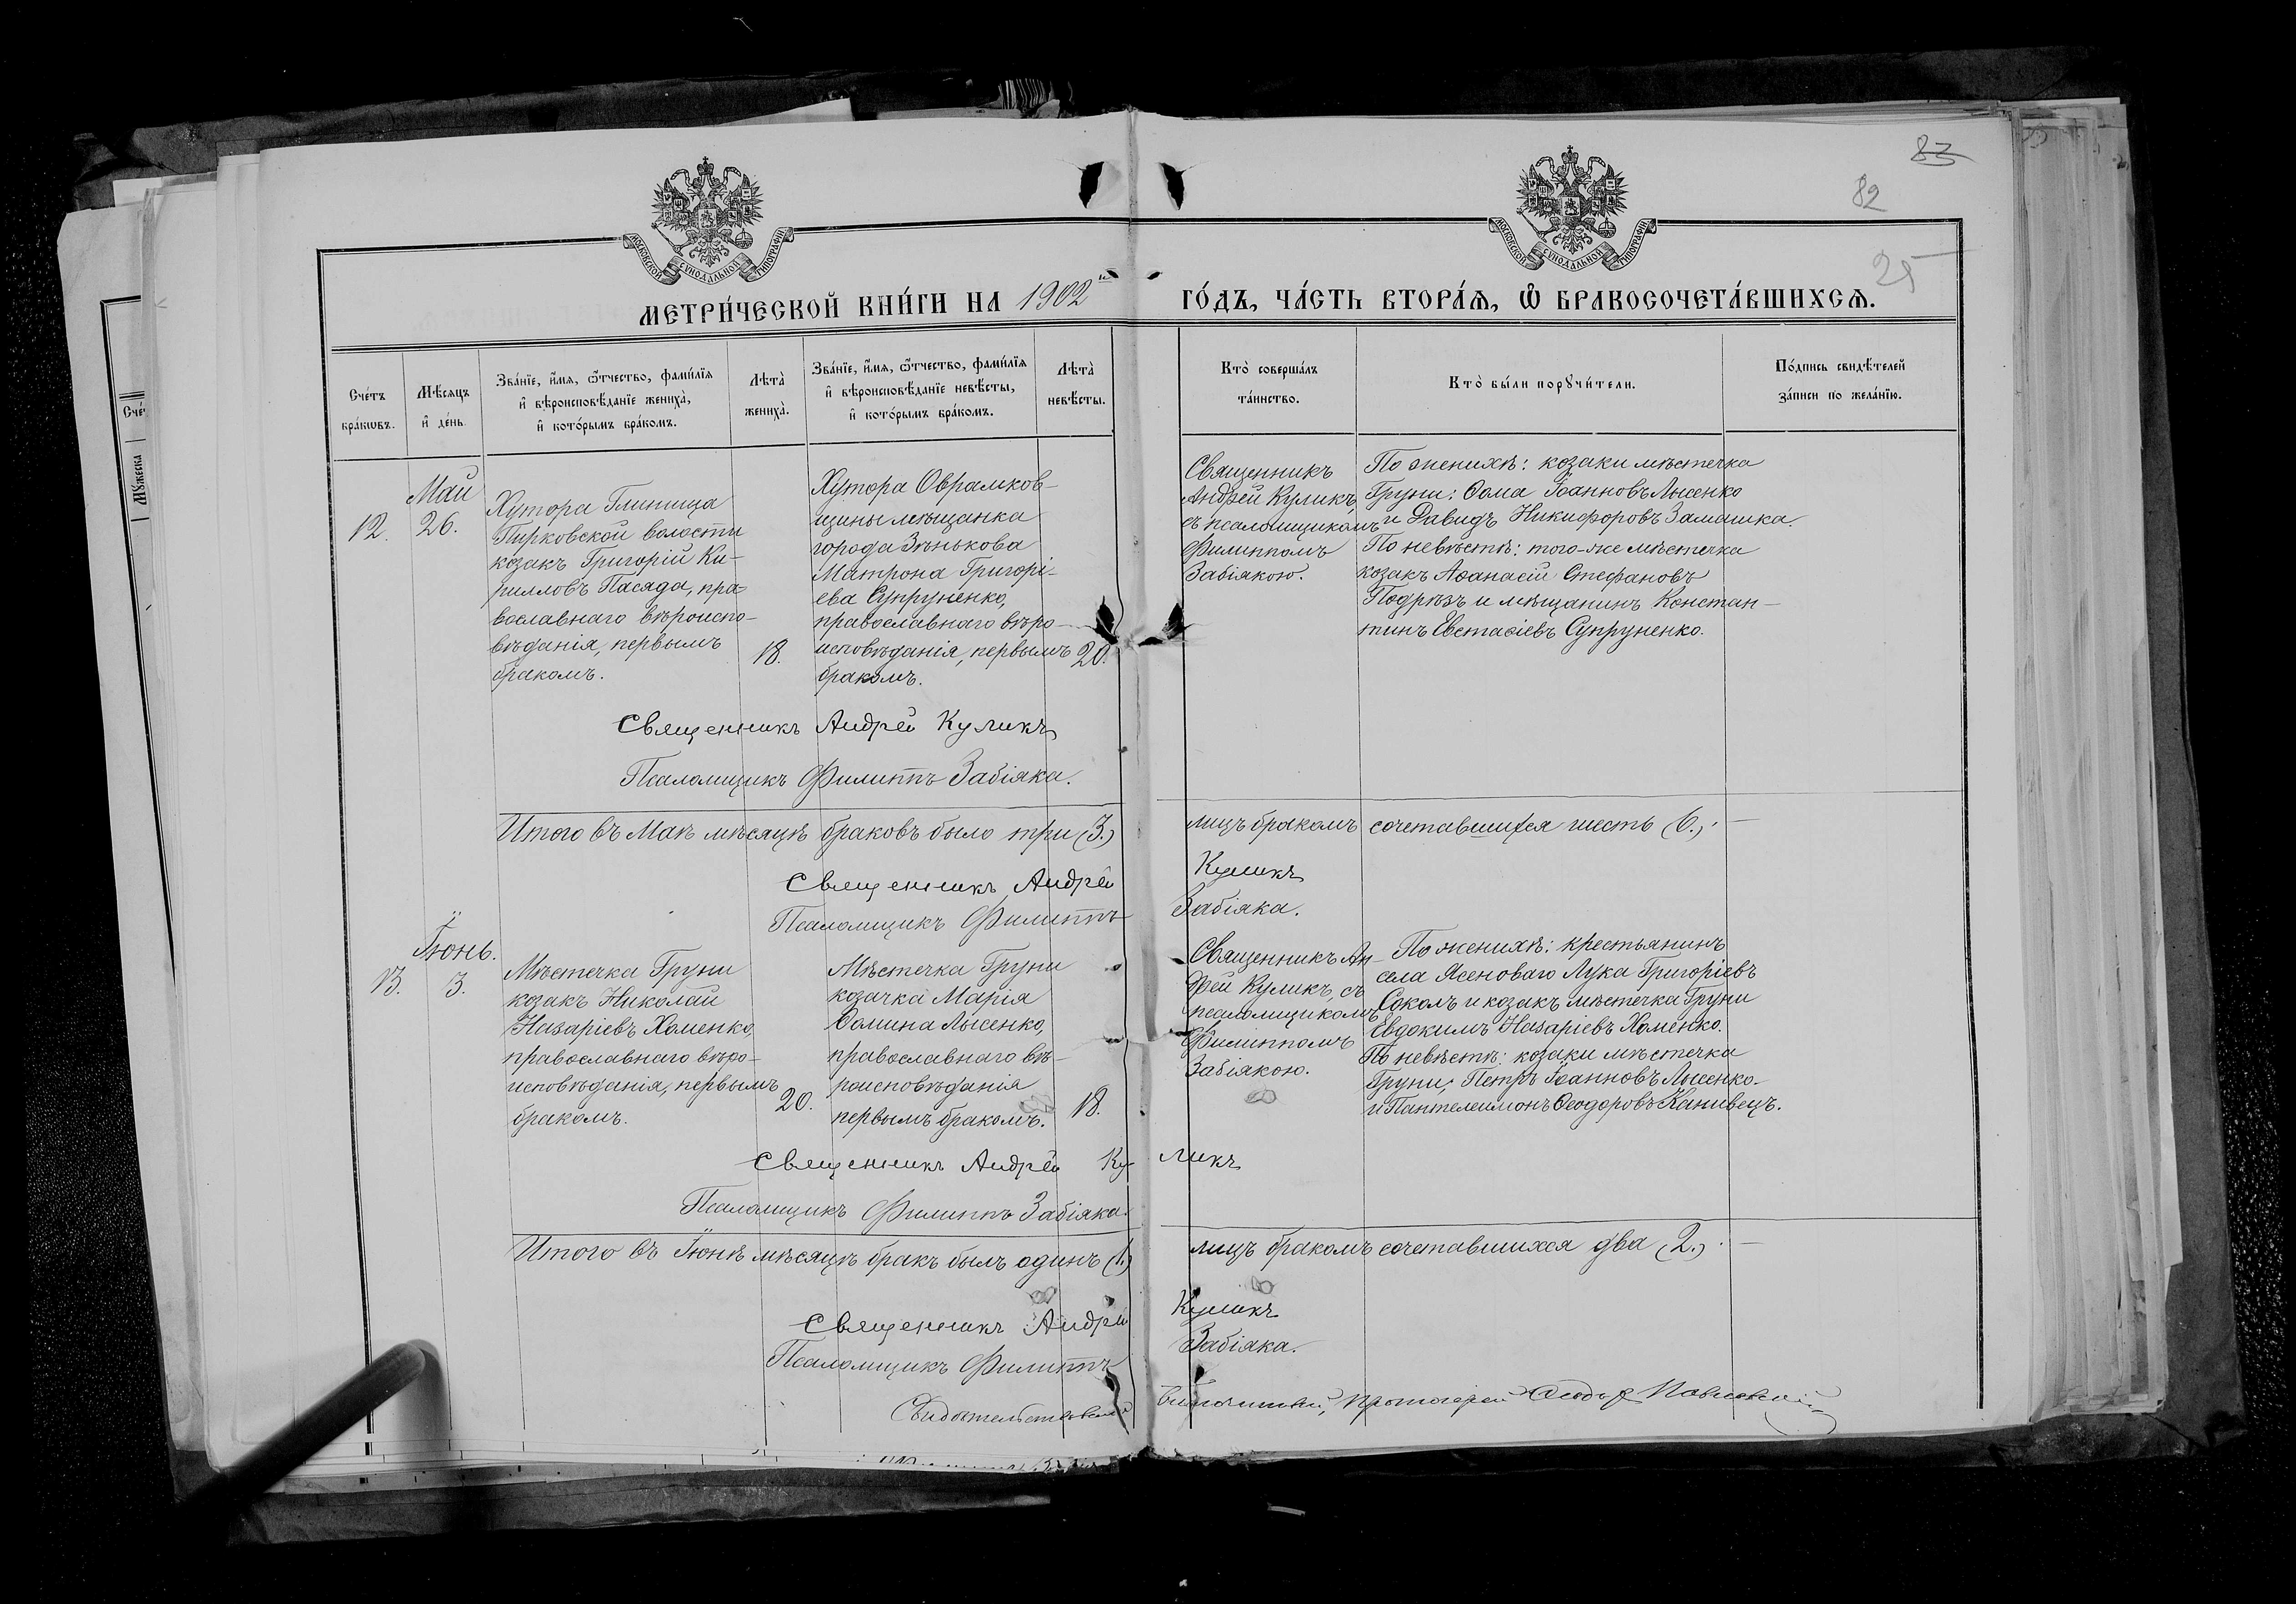 83
82
25
МОСКОВСКОЙ СѴНОДАЛЬНОЙ ТИПОГРАФІИ
МОСКОВСКОЙ СѴНОДАЛЬНОЙ ТИПОГРАФІИ
МЕТРИ́ЧЕСКОЙ КНИ́ГИ НА 1902й ГО́ДЪ, ЧА́СТЬ ВТОРА́Я, Ѽ БРАКОСОЧЕТА́ВШИХСЯ.
Сче́тъ
бра́кѡвъ.
Мѣ́сяцъ
и҆ де́нь.
Зва́нїе, и҆́мя, ѻ҆́тчество, фами́лїя
и҆ вѣроисповѣ́данїе жениха̀,
и҆ кото́рымъ бра́комъ.
Лѣта̀
жениха̀.
Зва́нїе, и҆́мя, ѻ҆́тчество, фами́лїя
и҆ вѣроисповѣ́данїе невѣ́сты,
и҆ кото́рымъ бра́комъ.
Лѣта̀
невѣ́сты.
Кто̀ соверша́лъ
та́инство.
Кто̀ бы́ли порꙋчи́тели.
По́дпись свидѣ́телей
за́писи по жела́нїю.
12.
Май
26.
Хутора Глинища
Пирковской волости
козакъ Григорій Ки-
рилловъ Пасяда, пра-
вославнаго вѣроиспо-
вѣданія, первымъ
бракомъ.
18.
Хутора Оврамков-
щины мѣщанка
города Зѣнькова
Матрона Григорі-
ева Супруненко,
православнаго вѣро-
исповѣданія, первымъ
бракомъ.
20.
Священникъ
Андрей Куликъ,
съ псаломщикомъ
Филиппомъ
Забіякою.
По женихѣ: козаки мѣстечка
Груни: Ѳома Іоанновъ Лысенко
и Давидъ Никифоровъ Замашка.
По невѣстѣ: того-же мѣстечка
козакъ Аѳанасій Стефановъ
Подрѣзъ и мѣщанинъ Констан-
тинъ Евстаѳіевъ Супруненко.
Священникъ Андрей Куликъ
Псаломщикъ Филиппъ Забіяка.
Итого въ Маѣ мѣсяцѣ браковъ было три (3.) лицъ бракомъ сочетавшихся шесть (6.). —
Священникъ Андрей Куликъ
Псаломщикъ Филиппъ Забіяка.
13.
Іюнь.
3.
Мѣстечка Груни
козакъ Николай
Назаріевъ Хоменко,
православнаго вѣро-
исповѣданія, первымъ
бракомъ.
20.
Мѣстечка Груни
козачка Марія
Ѳомина Лысенко,
православнаго вѣ-
роисповѣданія
первымъ бракомъ.
18.
Священникъ Ан-
дрей Куликъ, съ
псаломщикомъ
Филиппомъ
Забіякою.
По женихѣ: крестьянинъ
села Ясеноваго Лука Григоріевъ
Соколъ и козакъ мѣстечка Груни
Евдокимъ Назаріевъ Хоменко.
По невѣстѣ: козаки мѣстечка
Груни; Петръ Іоанновъ Лысенко
и Пантелеимонъ Ѳеодоровъ Канивецъ.
Священникъ Андрей Куликъ
Псаломщикъ Филиппъ Забіяка.
Итого въ Іюнѣ мѣсяцѣ бракъ былъ одинъ (1.) лицъ бракомъ сочетавшихся два (2.). —
Священникъ Андрей Куликъ
Псаломщикъ Филиппъ Забіяка.
Протоіерей Ѳеодоръ
Сче́
Мꙋ́жеска